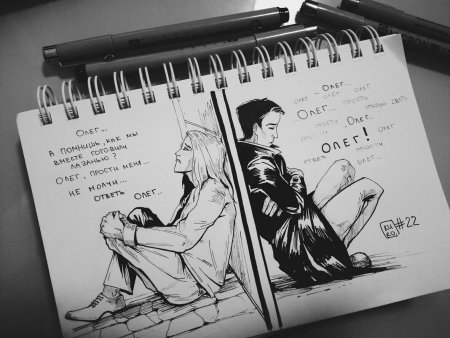 Олег...
А помнишь, как мы
вместе готовили
лазанью?
Олег, прости меня...
Не молчи...
Ответь Олег..
Олег ... Олег...
Олег Олег
Олег... прости
прости Олег..
Олег! Олег
прости
Олег...
RUKO #22